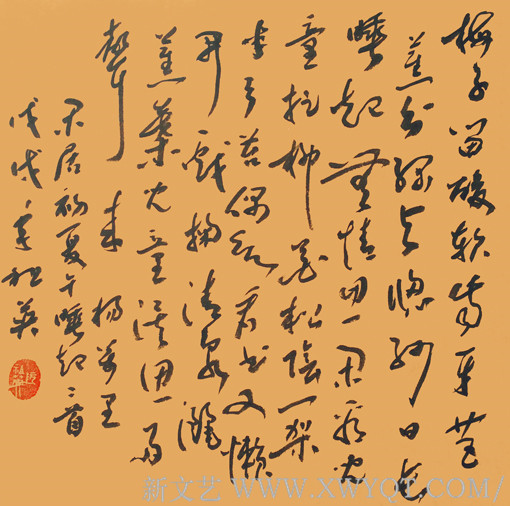 梅子留酸软齿牙芭
蕉分绿与窗纱日长
睡起無情思闲看儿
童捉柳花松陰一架
半弓苔偶欲看书又懒
开戏掬清泉灑
蕉葉儿童误认雨
聲来 杨万里
闲居初夏午睡起二首
戊戌祖英
新文艺 WWW.XWYQT.COM/